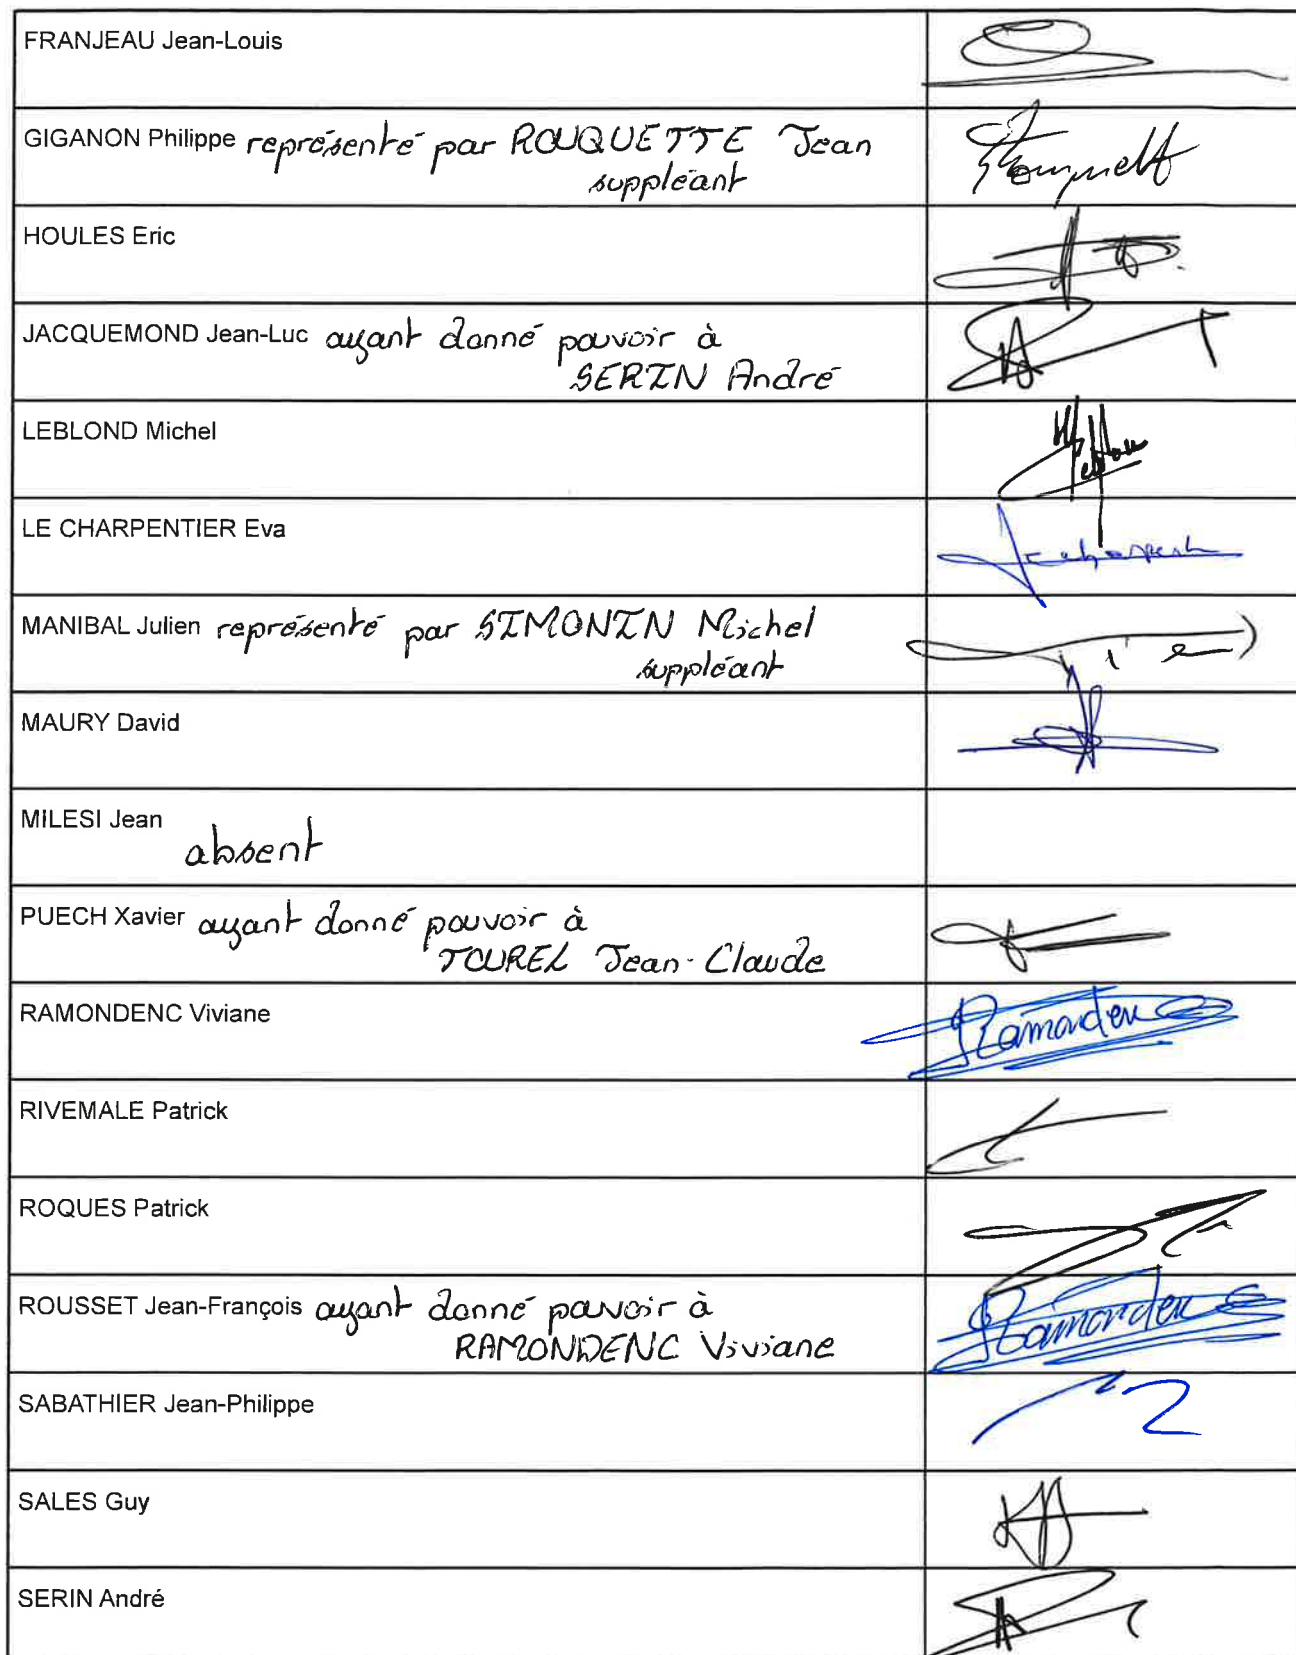 FRANJEAU Jean-Louis
GIGANON Philippe représenté par ROUQUETTE Jean
suppléant
HOULES Eric
JACQUEMOND Jean-Luc ayant donné pouvoir à
SERIN André
LEBLOND Michel
LE CHARPENTIER Eva
MANIBAL Julien représenté par SIMONIN Michel
suppléant
MAURY David
MILESI Jean
absent
PUECH Xavier ayant donné pouvoir à
TOUREL Jean-Claude
RAMONDENC Viviane
RIVEMALE Patrick
ROQUES Patrick
ROUSSET Jean-François ayant donné pouvoir à
RAMONDENC Viviane
SABATHIER Jean-Philippe
SALES Guy
SERIN André